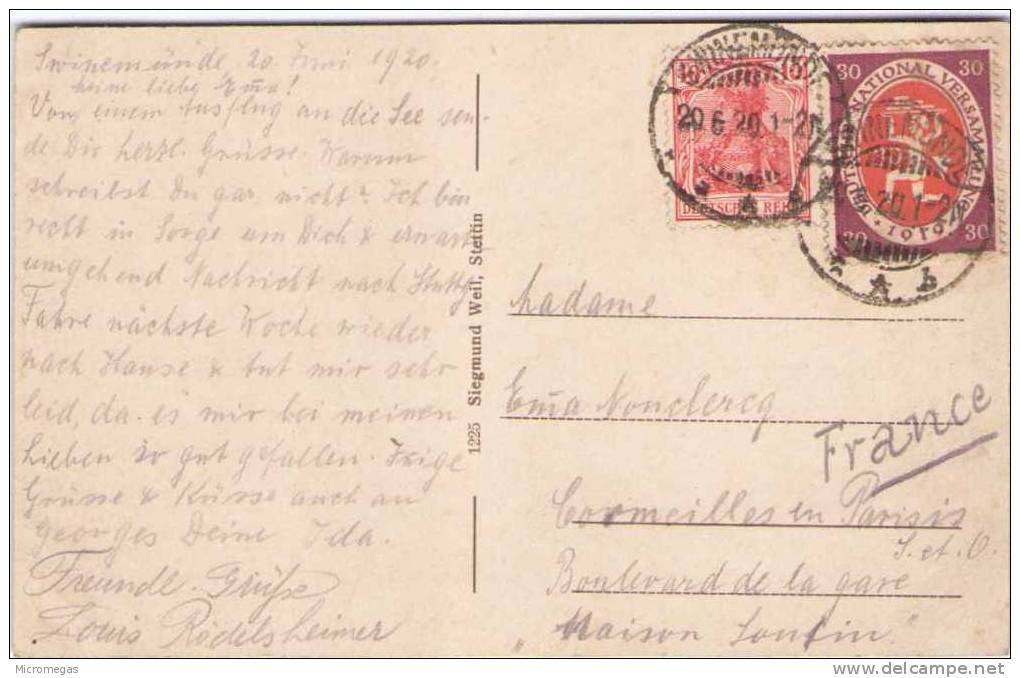 Swinemünde, 20. Juni 1920.
meine liebe Em̄a!
Von einem Ausflug an die See sen-
de Dir herzl. Grüsse. Warum
schreibst Du gar nicht? Ich bin
recht in Sorge um Dich & erwarte
umgehend Nachricht nach Stuttg.
Fahre nächste Woche wieder
nach Hause & tut mir sehr
leid, da es mir bei meinen
Lieben so gut gefallen.
Grüsse & Küsse auch an
Georges Deine Ida.
Freundl. Grüße
Louis Rödelsheimer
1225 Siegmund Weil, Stettin
10 10
DEUTSCHES REICH
20 6 20. 1-2N
30 30
DEUTSCHE NATIONAL VERSAMMLUNG
1919
30 30
20. 1-2N
* A b
Madame
Em̄a Nonclercq
France
Cormeilles en Parisis
S. et. O.
Boulevard de la gare
"Maison Lonfin"
Micromegas
delcampe.net